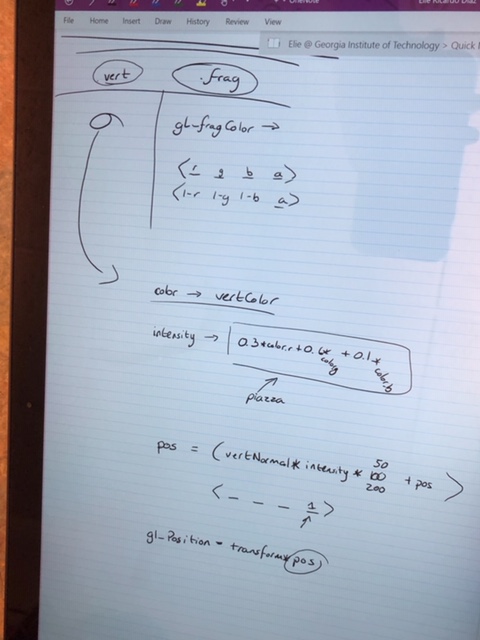 File Home Insert Draw History Review View
Elie @ Georgia Institute of Technology > Quick
vert .frag
gl-fragColor →
<r g b a>
<1-r 1-g 1-b a>
color → vertColor
intensity → 0.3*color.r+0.6*color.g+0.1*color.b
piazza
pos = (vertNormal * intensity * 50 + pos)
100
200
<_ _ _ 1>
gl-Position = transform*pos